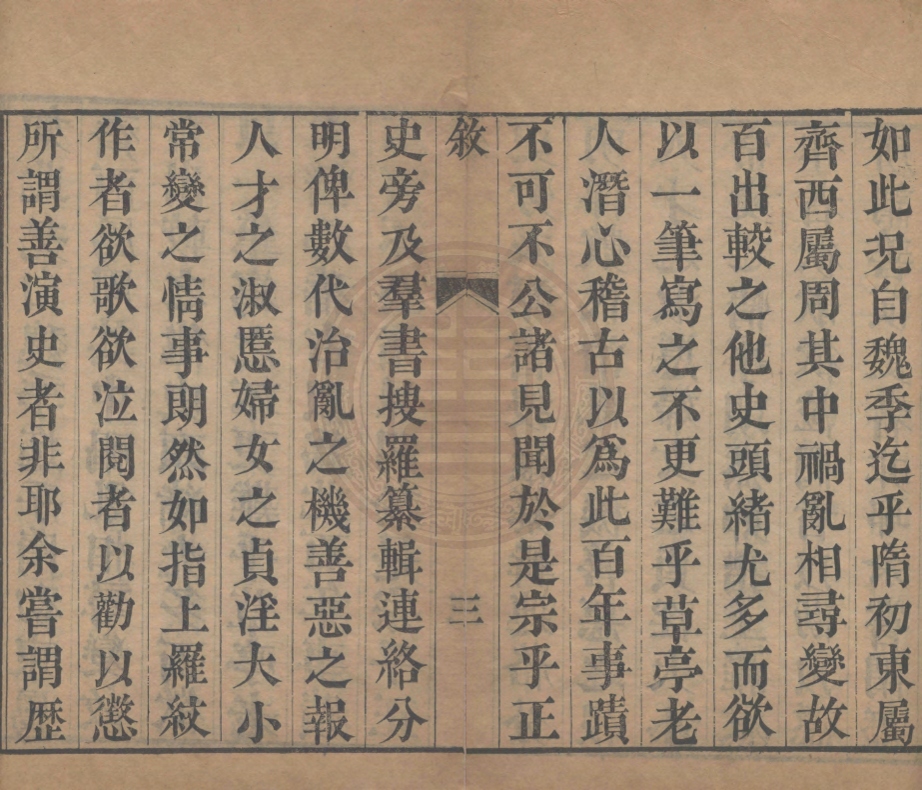 如此況自魏季迄乎隋初東屬
齊西屬周其中禍亂相尋變故
百出較之他史頭緒尤多而欲
以一筆寫之不更難乎草亭老
人潛心稽古以爲此百年事蹟
不可不公諸見聞於是宗乎正
敘 三
史旁及羣書搜羅纂輯連絡分
明俾數代治亂之機善惡之報
人才之淑慝婦女之貞淫大小
常變之情事朗然如指上羅紋
作者欲歌欲泣閱者以勸以懲
所謂善演史者非耶余嘗謂歷